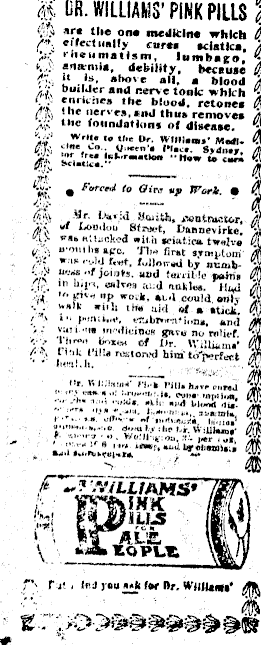 DR. WILLIAMS' PINK PILLS
are the one medicine which
effectually cures sciatica,
rheumatism, lumbago,
anæmia, debility, because
it is, above all, a blood
builder and nerve tonic which
enriches the blood, retones
the nerves, and thus removes
the foundations of disease.
Write to the Dr. Williams' Medi-
cine Co., Queen's Place, Sydney,
for free information "How to cure
Sciatica."
Forced to Give up Work.
Mr. David Smith, contractor,
of London Street, Dannevirke,
was attacked with sciatica twelve
months ago. The first symptom
was cold feet, followed by numb-
ness of joints, and terrible pains
in hips, calves and ankles. Had
to give up work, and could only
walk with the aid of a stick.
embrocations, and
various medicines gave no relief.
Three boxes of Dr. Williams'
Pink Pills restored him to perfect
health.
Dr. Williams' Pink Pills have cured
many cases of bronchitis, consumption,
coughs and colds, skin and blood dis-
anæmia,
effects of
by the Dr. Williams'
Wellington, 3/- per box,
and by chemists
and storekeepers.
DR. WILLIAMS'
PINK
PILLS
FOR
PALE
PEOPLE
you ask for Dr. Williams'